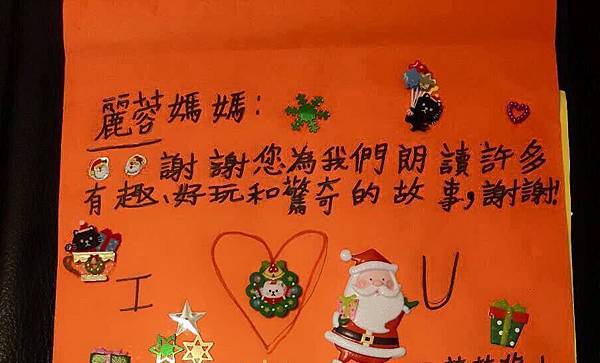 麗蓉媽媽:
謝謝您為我們朗讀許多
有趣、好玩和驚奇的故事,謝謝!
I U